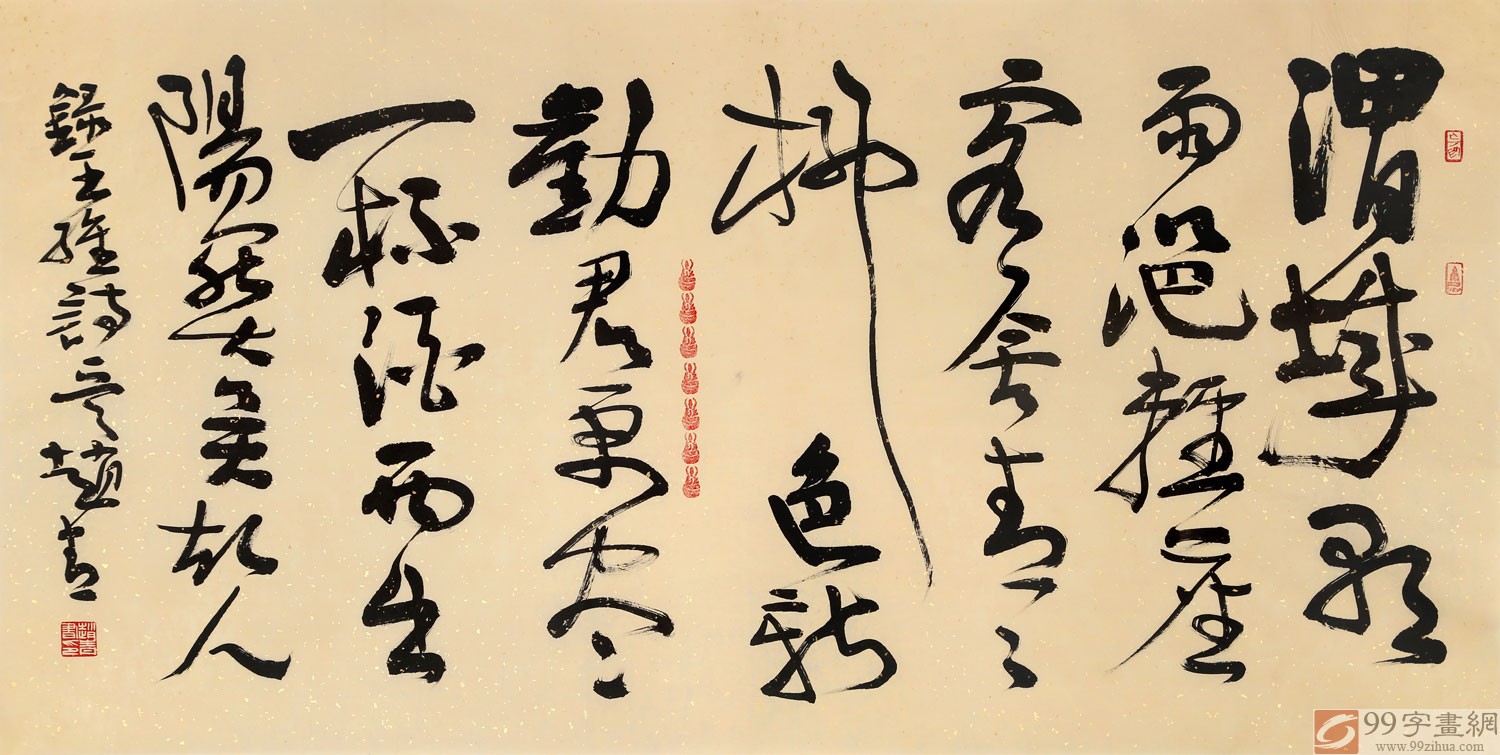 渭城朝
雨浥輕塵
客舍青〻
柳色新
勸君更尽
一杯酒西出
陽關無故人
錄王維詩意趙青
趙青書印
99字畫網
www.99zihua.com